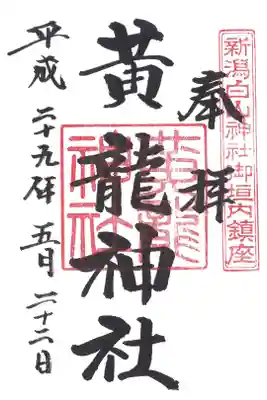 新潟白山神社御垣内鎮座
奉拝
黄龍神社
黄龍神社
平成二十九年五月二十二日